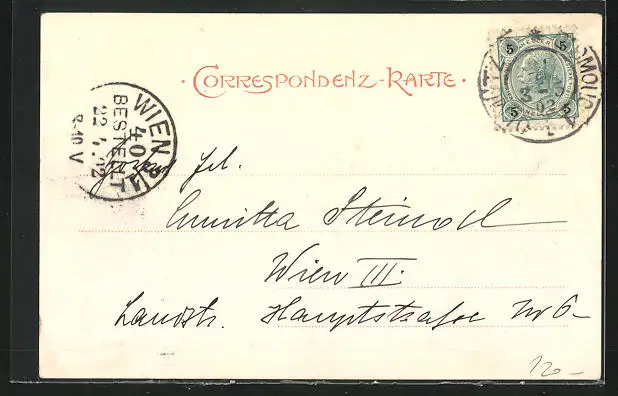 CORRESPONDENZ-KARTE.
5 5
5 5
OLMÜTZ
WIEN 3/1
40
BESTELLT
22.1.02
8-10 V
Frl.
Steinock
Wien III.
Landstr. Hauptstraße Nr 6-
120-